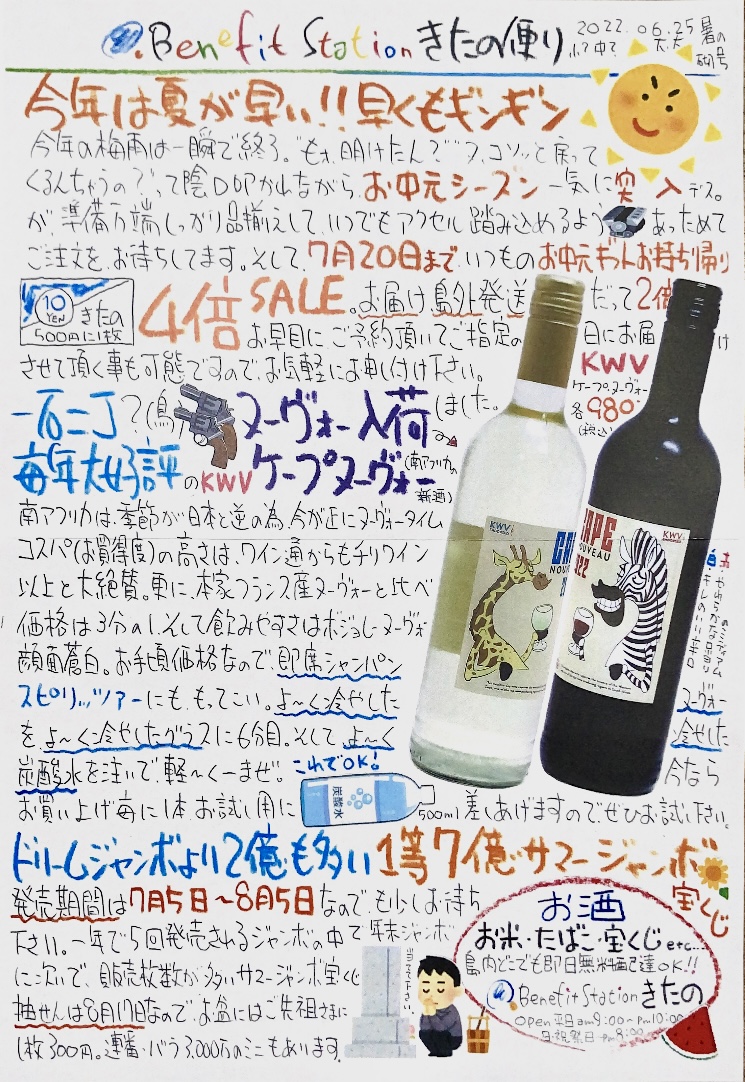 Benefit Station きたの便り
2022.06.25
今年は夏が早い!!早くもギンギン
今年の梅雨は一瞬で終了。"もォ、明けたん?"
くるんちゃうの?"って陰口叩かれながら、お中元シーズン一気に突入デス。
が、準備万端しっかり品揃えして、いつでもアクセル踏み込めるよう あっためて
ご注文を、お待ちしてます。そして、7月20日まで、いつものお中元ギフトお持ち帰り
10 YEN きたの 500円に1枚
4倍SALE。お届け島外発送だって2倍
お早目にご予約頂いてご指定の 日にお届け
させて頂く事も可能ですので、お気軽にお申し付け下さい。
KWV
ケープ・ヌーヴォー
各980-
(税込)
一石二丁?(鳥) ヌーヴォー入荷しました。
毎年大好評のKWVケープヌーヴォー(南アフリカの新酒)
南アフリカは、季節が日本と逆の為、今が正にヌーヴォータイム
コスパ(お買得度)の高さは、ワイン通からもチリワイン
以上と大絶賛。更に、本家フランス産ヌーヴォーと比べ
価格は3分の1、そして飲みやすさはボジョレーヌーヴォ
顔面蒼白。お手頃価格なので、即席シャンパン
スピリッツァーにも、もってこい。よ〜く冷やした
を、よ〜く冷やしたグラスに6分目。そして、よ〜く
ヌーヴォー
冷やした
炭酸水を注いで、軽〜くーまぜ。これでOK!
今なら
お買い上げ毎に1本、お試し用に 炭酸水 500ml差しあげますので、ぜひお試し下さい。
KWV
CAPE
NOUVEAU
KWV
CAPE
NOUVEAU
2022
ドリームジャンボより2億も多い1等7億サマージャンボ
宝くじ
発売期間は7月5日〜8月5日なので、も少しお待ち
下さい。一年で5回発売されるジャンボの中で年末ジャンボ
に次いで、販売枚数が多いサマージャンボ宝くじ
抽せんは8月17日なので、お盆にはご先祖さまに
1枚300円。連番・バラ3,000万のミニもあります。
お酒
お米・たばこ・宝くじetc...
島内どこでも即日無料配達OK!!
Benefit Stationきたの
Open平日am9:00〜pm10:00
日・祝祭日〜pm8:00